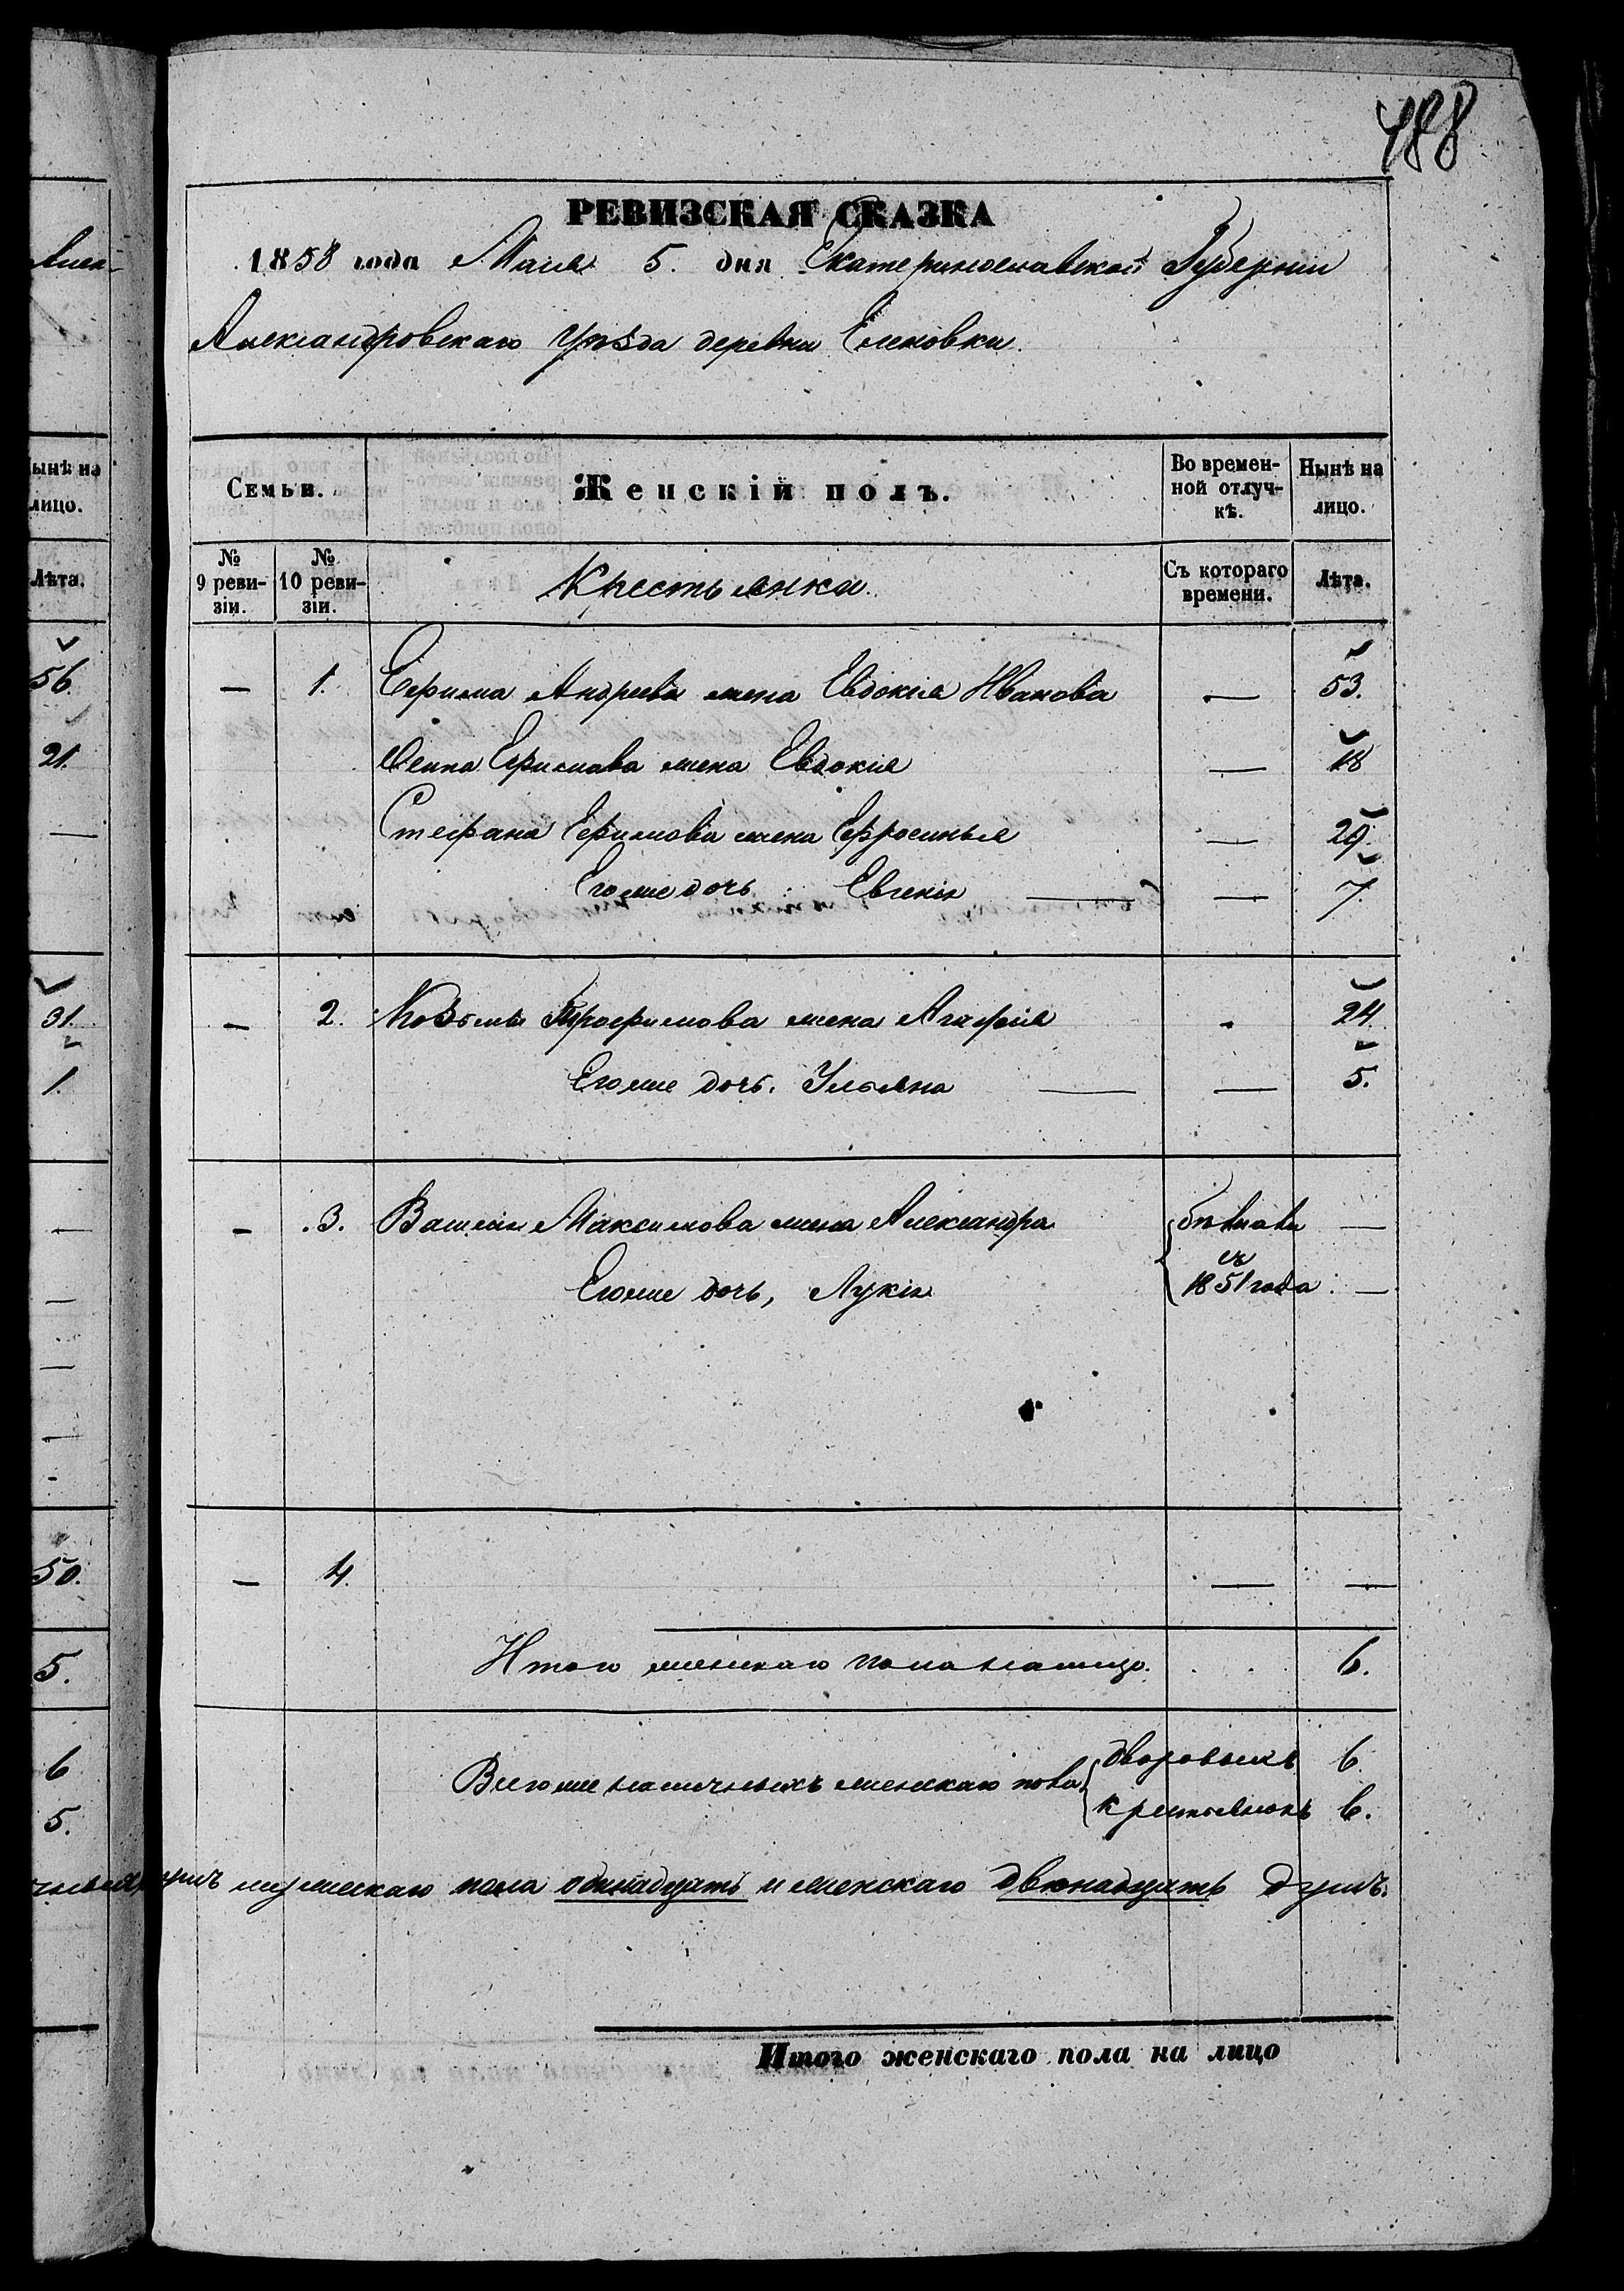 488
РЕВИЗСКАЯ СКАЗКА
1858 года Маія 5. дня Екатеринославской Губерніи
Александровскаго Уѣзда деревни Еленовки.
Семьи. Женскій полъ. Во времен-ной отлуч-кѣ. Нынѣ на лицо.
№ 9 реви-зіи. № 10 реви-зіи. Крестьянки. Съ котораго времени. Лѣта.
— 1. Ефима Андреева жена Евдокія Иванова — 53.
Ефимова жена Евдокія — 18
Стефана Ефимова жена Ефросинья — 29.
Его же дочь Евгенія — 7.
— 2. Козьмы Трофимова жена Агафія - 24.
Его же дочь. Ульяна — 5.
— 3. Максимова жена Александра бѣглави —
Его же дочь, Лукія съ 1851 года —
— 4. — —
Итого женскаго пола налицо. 6.
Всего же наличныхъ женскаго пола дворовыхъ 6.
крестьянокъ 6.
душъ мужескаго пола одинадцать и женскаго двенадцать душъ.
Итого женскаго пола на лицо
Нынѣ на
лицо.
Лѣта.
56.
21.
—
31.
1.
—
—
—
—
50.
5.
6
5.